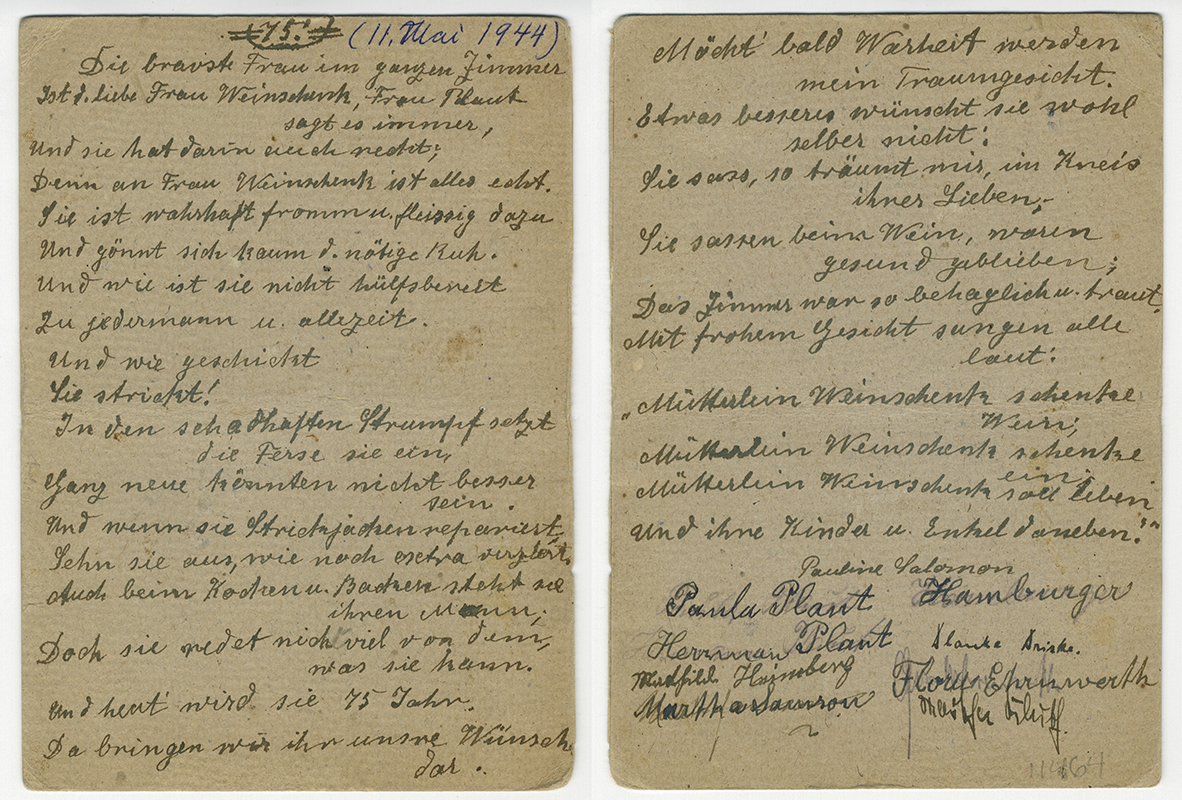 75. (11. Mai 1944)
Die bravste Frau im ganzen Zimmer
Ist d. liebe Frau Weinschenk, Frau Plaut
sagt es immer,
Und sie hat darin auch recht;
Denn an Frau Weinschenk ist alles echt.
Sie ist wahrhaft fromm u. fleissig dazu
Und gönnt sich kaum d. nötige Ruh.
Und wie ist sie nicht hülfsbereit
Zu jedermann u. allezeit.
Und wie geschickt
Sie strickt!
In den schadhaften Strumpf setzt
die Ferse sie ein,
Ganz neue könnten nicht besser
sein.
Und wenn sie Strickjacken repariert,
Sehn sie aus, wie noch extra verziert.
Auch beim Kochen u. Backen steht sie
ihren Mann;
Doch sie redet nicht viel von dem,
was sie kann.
Und heut' wird sie 75 Jahr.
Da bringen wir ihr unsre Wünsche
dar.
Möcht' bald Warheit werden
mein Traumgesicht.
Etwas besseres wünscht sie wohl
selber nicht:
Sie sass, so träumt mir, im Kreis
ihrer Lieben,
Sie sassen beim Wein, waren
gesund geblieben;
Das Zimmer war so behaglich u. traut,
Mit frohem Gesicht sungen alle
laut:
„Mütterlein Weinschenk schenke
Wein,
Mütterlein Weinschenk schenke
ein,
Mütterlein Weinschenk soll leben
Und ihre Kinder u. Enkel daneben!"
Pauline Salomon
Paula Plaut Hamburger
Herrman Plaut
Mathild Heimberg Flora Ehrnwerth
Martha Samson
11464